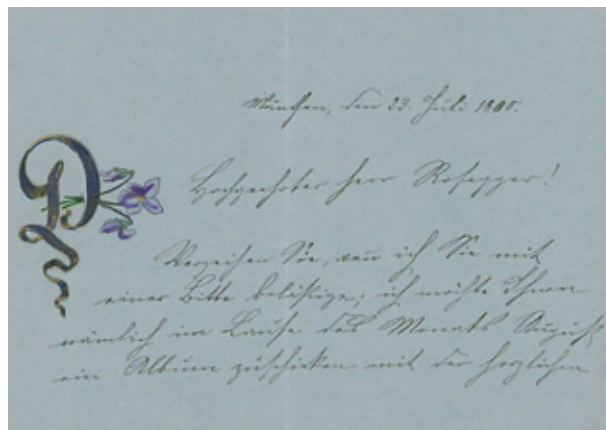 München, den 23. Juli 1888.
Hochgeehrter Herr Rosegger!
Verzeihen Sie, wenn ich Sie mit
einer Bitte belästige; ich möchte Ihnen
nämlich im Laufe des Monats August
ein Album zuschicken mit der herzlichen